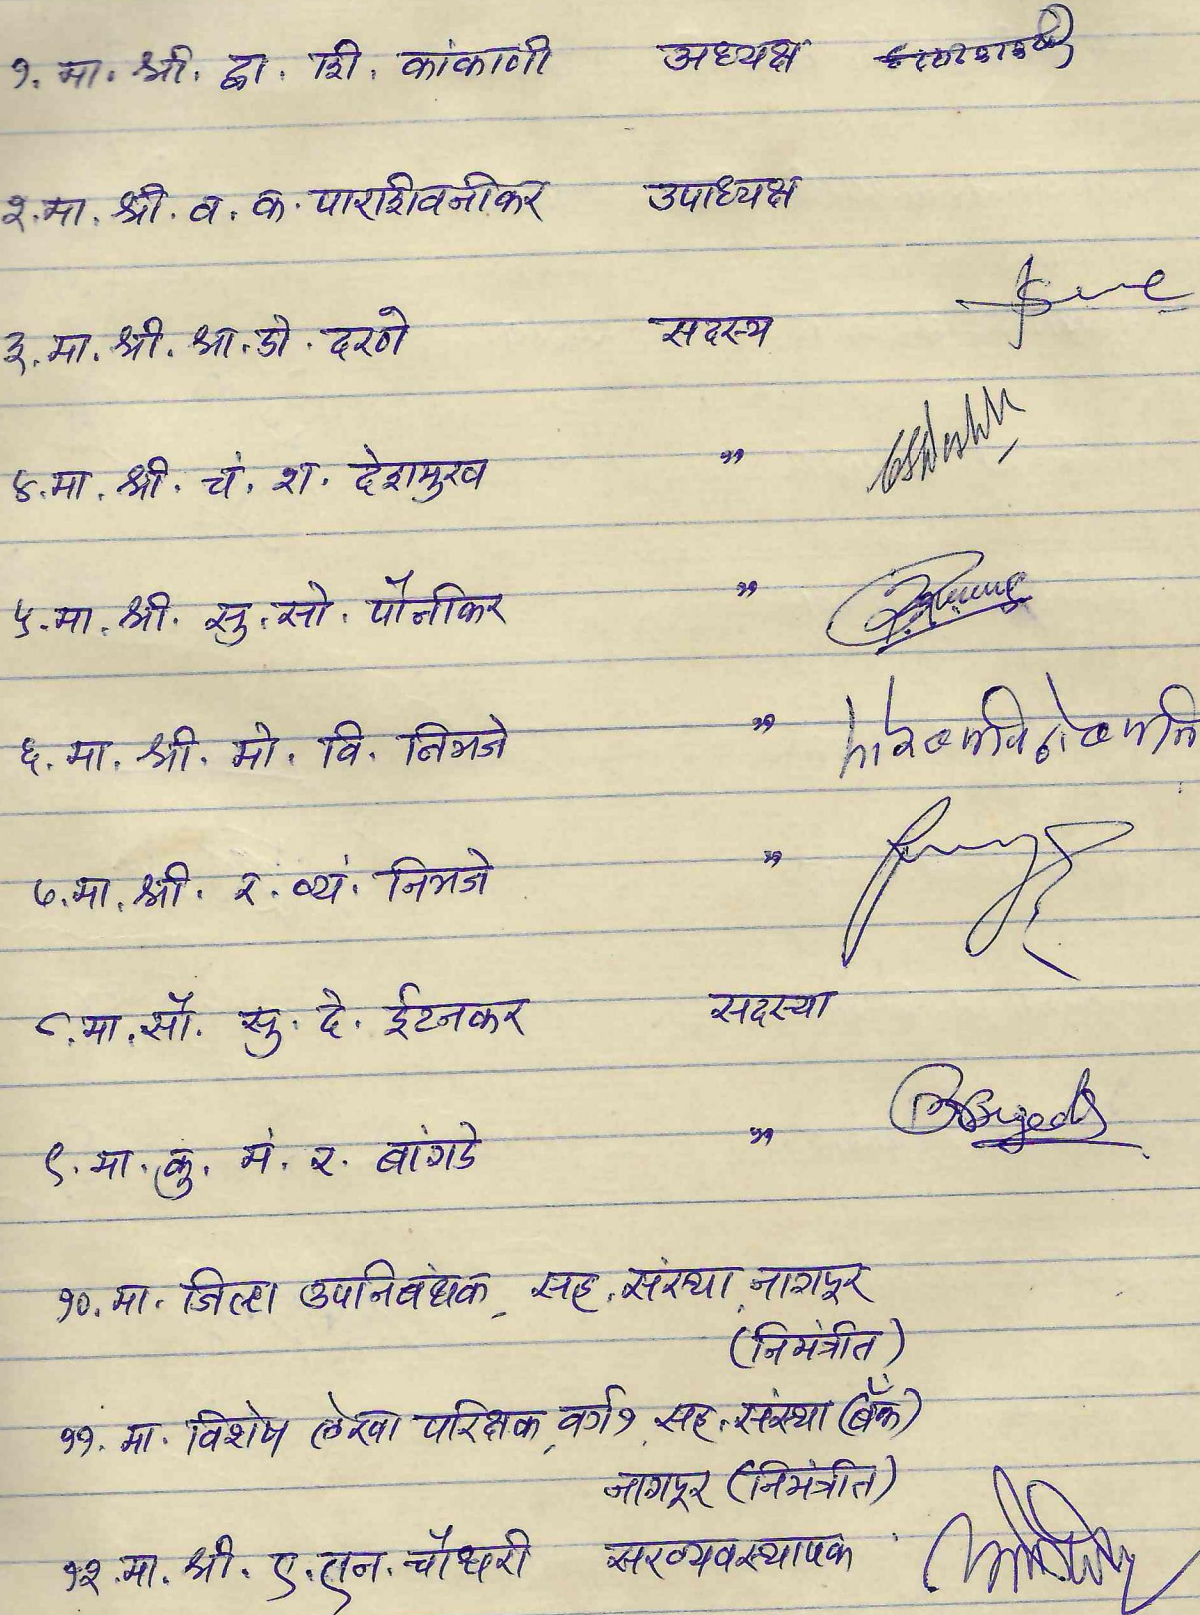 १. मा. श्री. द्वा. शि. कांकाणी अध्यक्ष
२. मा. श्री. व. क. पाराशिवनीकर उपाध्यक्ष
३. मा. श्री. श्रा. डो. दरणे सदस्य
४. मा. श्री. चं. श. देशमुख "
५. मा. श्री. सु. सो. पौनीकर "
६. मा. श्री. मो. वि. निमजे "
७. मा. श्री. र. व्यं. निमजे "
८. मा. सौ. सु. दे. ईटनकर सदस्या
९. मा. कु. मं. र. बांगडे "
१०. मा. जिल्हा उपनिबंधक, सह. संस्था, नागपूर
(निमंत्रीत)
११. मा. विशेष लेखा परिक्षक, वर्ग १, सह. संस्था (बँक)
नागपूर (निमंत्रीत)
१२. मा. श्री. ए. एन. चौधरी सरव्यवस्थापक